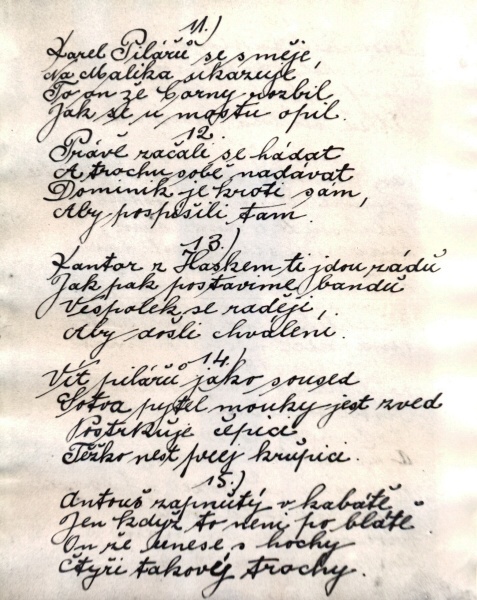 11.)
Karel Pilářů se směje,
Na Malika ukazuje
To on že Corny rozbil
Jak se u mostu opil.
12.
Právě začali se hádat
A trochu sobě nadávat
Dominik je krotí sám,
Aby pospíšili tam.
13.)
Kantor z Haskem ti jdou rádů
Jak pak postavíme bandů
Vespolek se radějí,
Aby došli chváleni.
14.)
Vít pilářů jako soused
Sotva pytel mouky jest zved
Postrkuje čepici
Těžko nest krupici.
15.)
Antouš zapnutý v kabátě
Jen když to není po blátě
On že unese s hochy
Čtyři takovéj trochy.